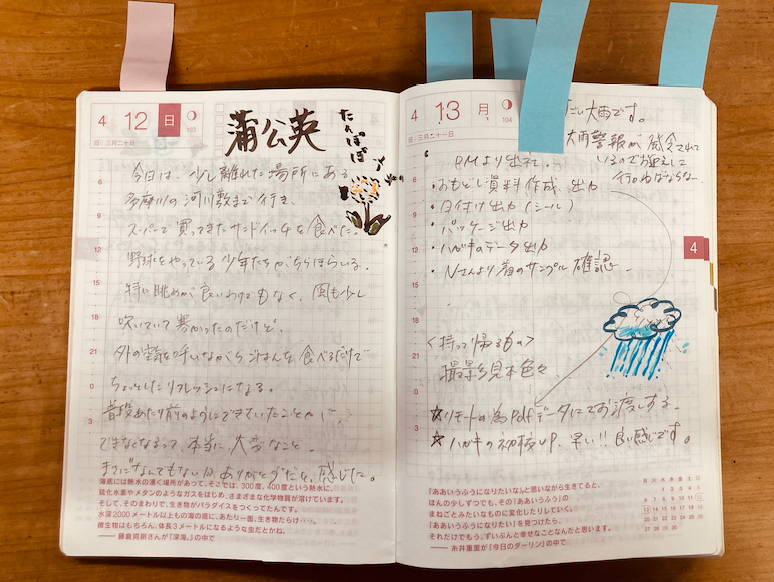 4 12 日
103
旧 三月二十日
蒲公英
たんぽぽ
今日は、少し離れた場所にある
多摩川の河川敷まで行き、
スーパーで買ってきたサンドイッチを食べた。
野球をやっている少年たちがちらほらいる。
特に眺めが良いわけでもなく、風も少し
吹いていて寒かったのだけど、
外の空気を吸いながらごはんを食べるだけで
ちょっとしたリフレッシュになる。
普段あたり前のようにできていたことが、
できなくなるって、本当に大変なこと。
まさに"なんでもない日、ありがとう"だと、感じた。
6
9
12
15
18
21
0
3
海底には熱水の湧く場所があって、そこでは、300度、400度という熱水に、
硫化水素やメタンのようなガスをはじめ、さまざまな化学物質が溶けています。
そして、そのまわりで、生き物がパラダイスをつくってたんです。
水深2000メートル以上もの海の底に、あたり一面、生き物だらけ……。
微生物はもちろん、体長3メートルになるような虫だとかね。
――藤倉克則さんが『深海。』の中で
4 13 月
104
旧 三月二十一日
大雨です。
大雨警報が発令されて
いるのでお迎えに
行かねばならない
PMより出社、
・おもどし資料作成、出力
・日付け出力(シール)
・パッケージ出力
・ハガキのデータ出力
・Nさんより着のサンプル確認。
<持って帰るもの>
撮影見本色々、
☆リモートの為pdfデータにてお渡しする。
☆ハガキの初校UP、早い!!良い感じです。
6
9
12
15
18
21
0
3
4
『ああいうふうになりたいな』と思いながら生きてると、
ほんの少しずつでも、その「ああいうふう」の
まねごとみたいなものに変化したりしていく。
『ああいうふうになりたい』を見つけたら、
それだけでもう、ずいぶんと幸せなことなんだと思います。
――糸井重里が『今日のダーリン』の中で
月 火 水 木 金 土 日
1 2 3 4 5
6 7 8 9 10 11 12
13 14 15 16 17 18 19
20 21 22 23 24 25 26
27 28 29 30